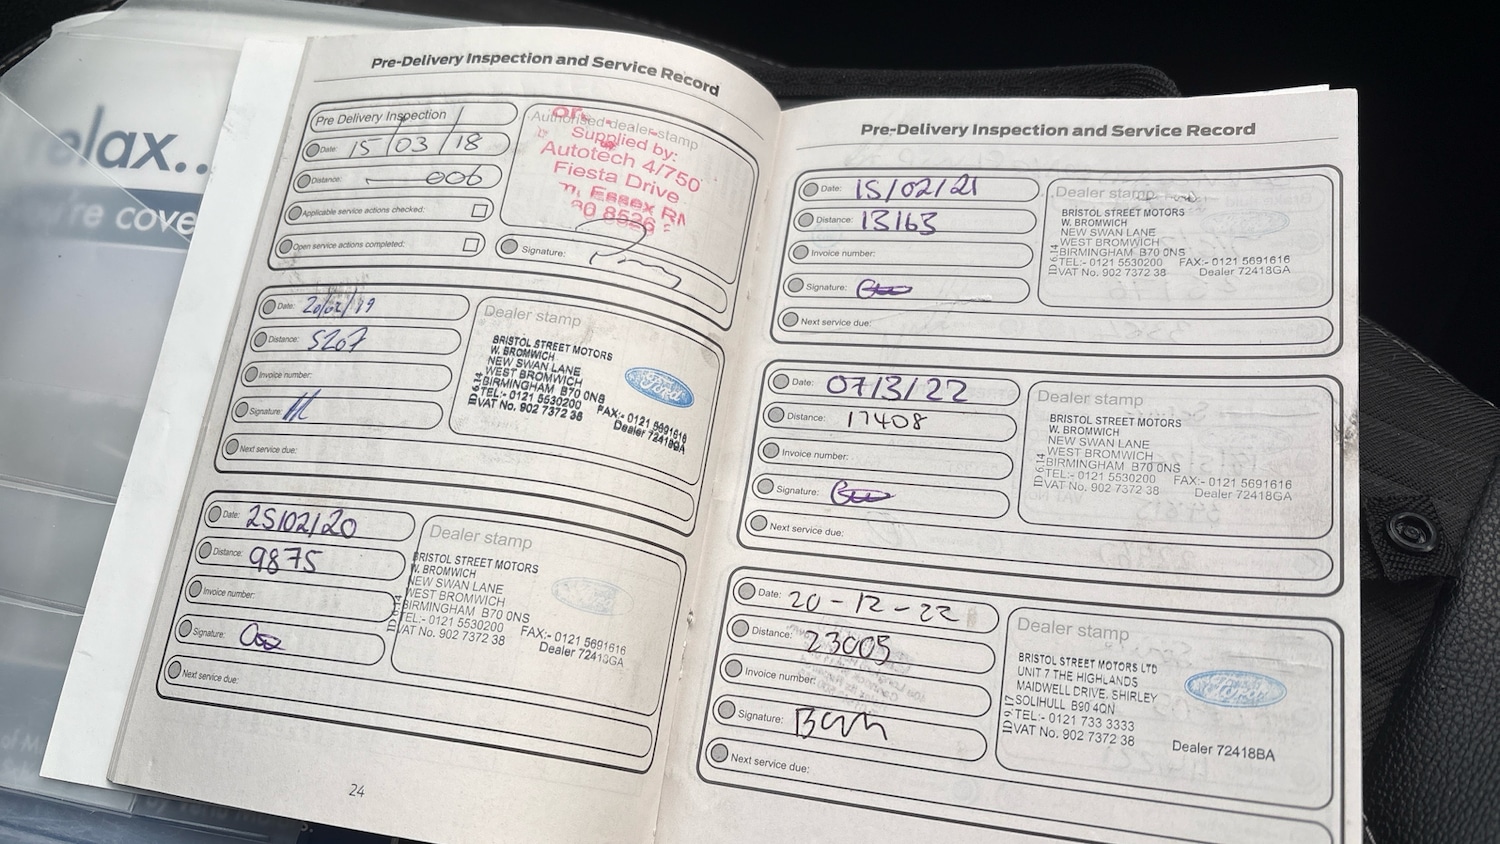 relax..
're cove
Pre-Delivery Inspection and Service Record
Pre Delivery Inspection
Date: 15/03/18
Distance: 006
Applicable service actions checked:
Open service actions completed:
Authorised dealer stamp
Supplied by:
Autotech 4/750
Fiesta Drive
Essex RM
Signature:
Date: 20/02/19
Distance: 5207
Invoice number:
Signature:
Next service due:
Dealer stamp
BRISTOL STREET MOTORS
W. BROMWICH
NEW SWAN LANE
WEST BROMWICH
BIRMINGHAM B70 0NS
TEL:- 0121 5530200 FAX:- 0121 5691616
VAT No. 902 7372 38 Dealer 72418GA
ID 6.14
Ford
Date: 25/02/20
Distance: 9875
Invoice number:
Signature:
Next service due:
Dealer stamp
BRISTOL STREET MOTORS
W. BROMWICH
NEW SWAN LANE
WEST BROMWICH
BIRMINGHAM B70 0NS
TEL:- 0121 5530200 FAX:- 0121 5691616
VAT No. 902 7372 38 Dealer 72418GA
ID 6.14
24
Pre-Delivery Inspection and Service Record
Date: 15/02/21
Distance: 13163
Invoice number:
Signature:
Next service due:
Dealer stamp
BRISTOL STREET MOTORS
W. BROMWICH
NEW SWAN LANE
WEST BROMWICH
BIRMINGHAM B70 0NS
TEL:- 0121 5530200 FAX:- 0121 5691616
VAT No. 902 7372 38 Dealer 72418GA
ID 6.14
Date: 07/3/22
Distance: 17408
Invoice number:
Signature:
Next service due:
Dealer stamp
BRISTOL STREET MOTORS
W. BROMWICH
NEW SWAN LANE
WEST BROMWICH
BIRMINGHAM B70 0NS
TEL:- 0121 5530200 FAX:- 0121 5691616
VAT No. 902 7372 38 Dealer 72418GA
ID 6.14
Date: 20-12-22
Distance: 23005
Invoice number:
Signature:
Next service due:
Dealer stamp
BRISTOL STREET MOTORS LTD
UNIT 7 THE HIGHLANDS
MAIDWELL DRIVE, SHIRLEY
SOLIHULL B90 4QN
TEL:- 0121 733 3333
VAT No. 902 7372 38 Dealer 72418BA
ID 9.17